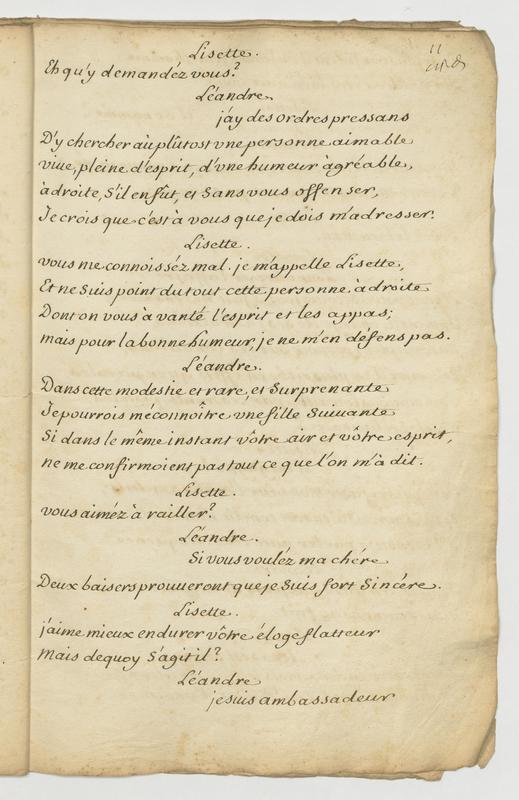 11
Lisette.
Eh qu'y demandéz vous?
Léandre.
j'ay des ordres pressans
D'y chercher àu plûtost vne personne aimable
viue, pleine d'esprit, d'vne humeur àgréable,
àdroite, S'il en fût, et Sans vous offenser,
Je crois que c'est à vous que je dois m'adresser.
Lisette.
vous me connoisséz mal. je m'appelle Lisette,
Et ne Suis point du tout cette personne àdroite
Dont on vous à vanté l'esprit et les appas;
mais pour la bonne humeur, je ne m'en défens pas.
Léandre.
Dans cette modestie et rare, et Surprenante
Je pourrois méconnoître vne fille Suiuante
Si dans le même instant vôtre air et vôtre esprit,
ne me confirmoient pas tout ce que l'on m'à dit.
Lisette.
vous aiméz à railler?
Léandre.
Si vous vouléz ma chére
Deux baisers prouueront que je Suis fort Sincére.
Lisette.
j'aime mieux endurer vôtre éloge flatteur
Mais dequoy S'agit il?
Léandre
je suis ambassadeur